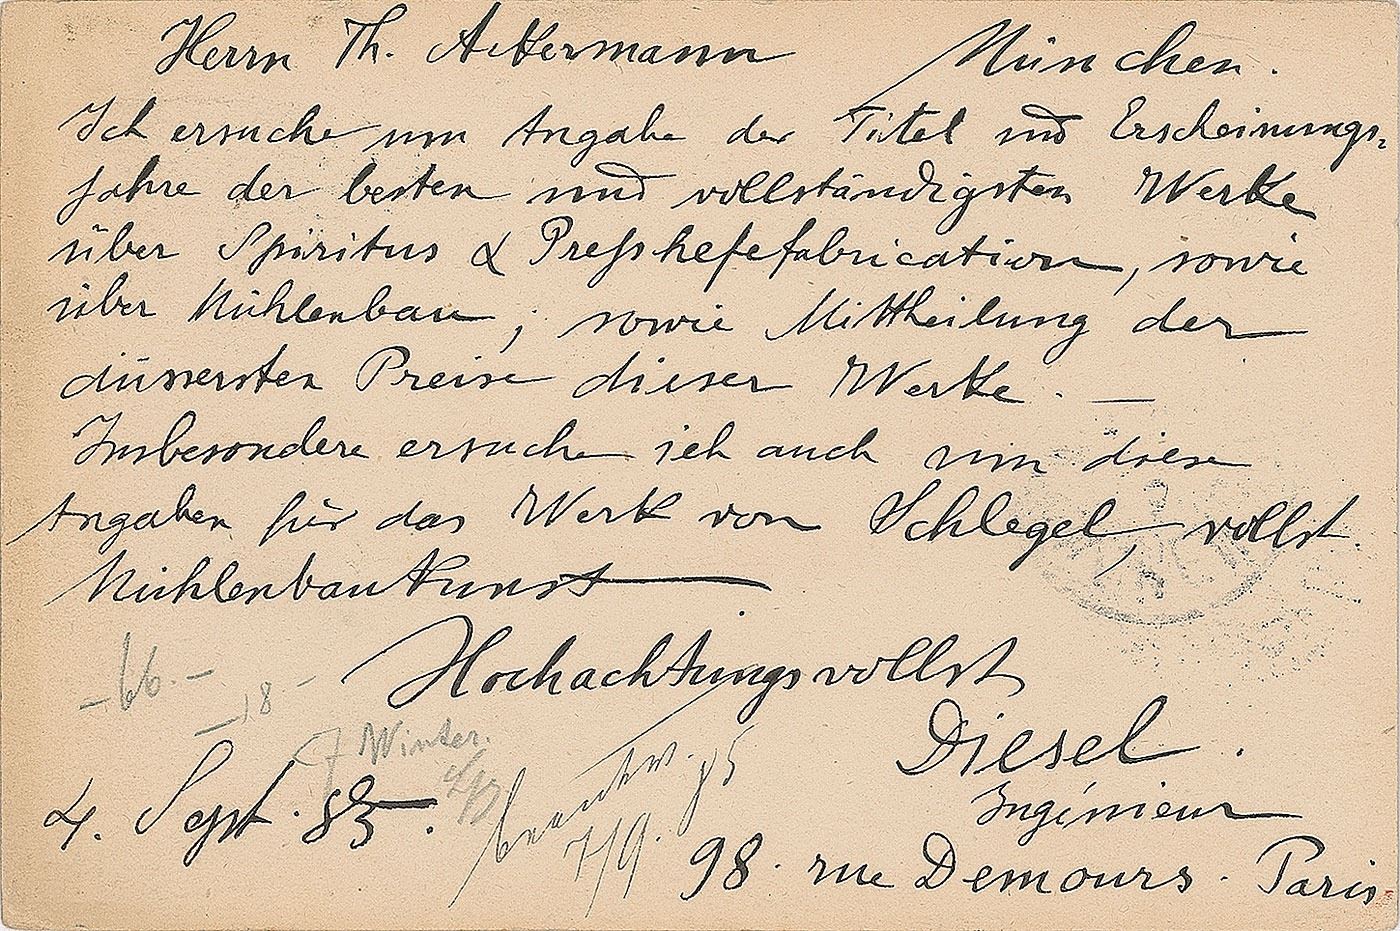 Herrn Th. Ackermann München.
Ich ersuche um Angabe der Titel und Erscheinungs-
jahre der besten und vollständigsten Werke
über Spiritus & Preßhefefabrication, sowie
über Mühlenbau, sowie Mittheilung der
äussersten Preise dieser Werke. —
Insbesondere ersuche ich auch um diese
Angaben für das Werk von Schlegel, vollst.
Mühlenbaukunst
Hochachtungsvollst
Diesel.
Ingénieur
98. rue Demours. Paris
4. Sept. 85.
- 66. -
- 18 -
Winter.
beantw. 85
7/9.